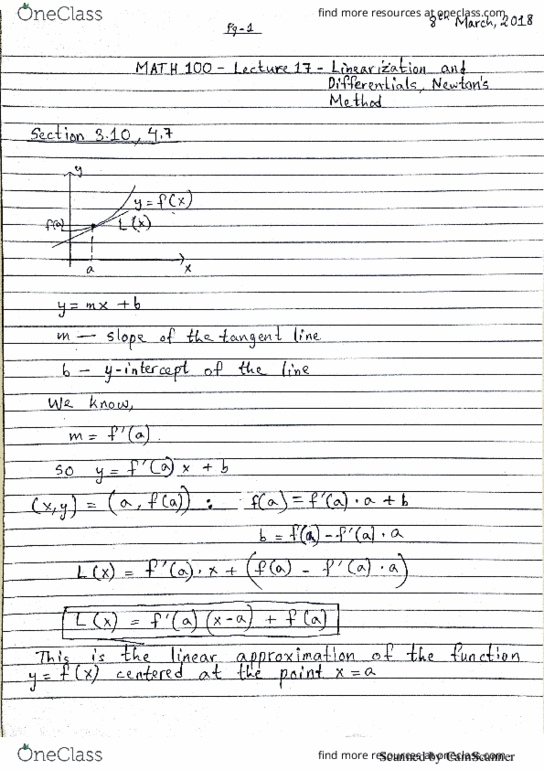 OneClass
find more resources at oneclass.com
8th March, 2018
Pg-1
MATH 100 - Lecture 17 - Linearization and
Differentials, Newton's
Method
Section 3.10, 4.7
y
y = f(x)
f(a)
L(x)
a
x
y = mx + b
m — slope of the tangent line
b - y-intercept of the line
We know,
m = f'(a).
so y = f'(a) x + b
(x,y) = (a, f(a)) : f(a) = f'(a) · a + b
b = f(a) - f'(a) · a
L(x) = f'(a) · x + (f(a) - f'(a) · a)
L(x) = f'(a) (x-a) + f(a)
This is the linear approximation of the function
y = f(x) centered at the point x = a
OneClass
find more resources at oneclass.com
Scanned by CamScanner